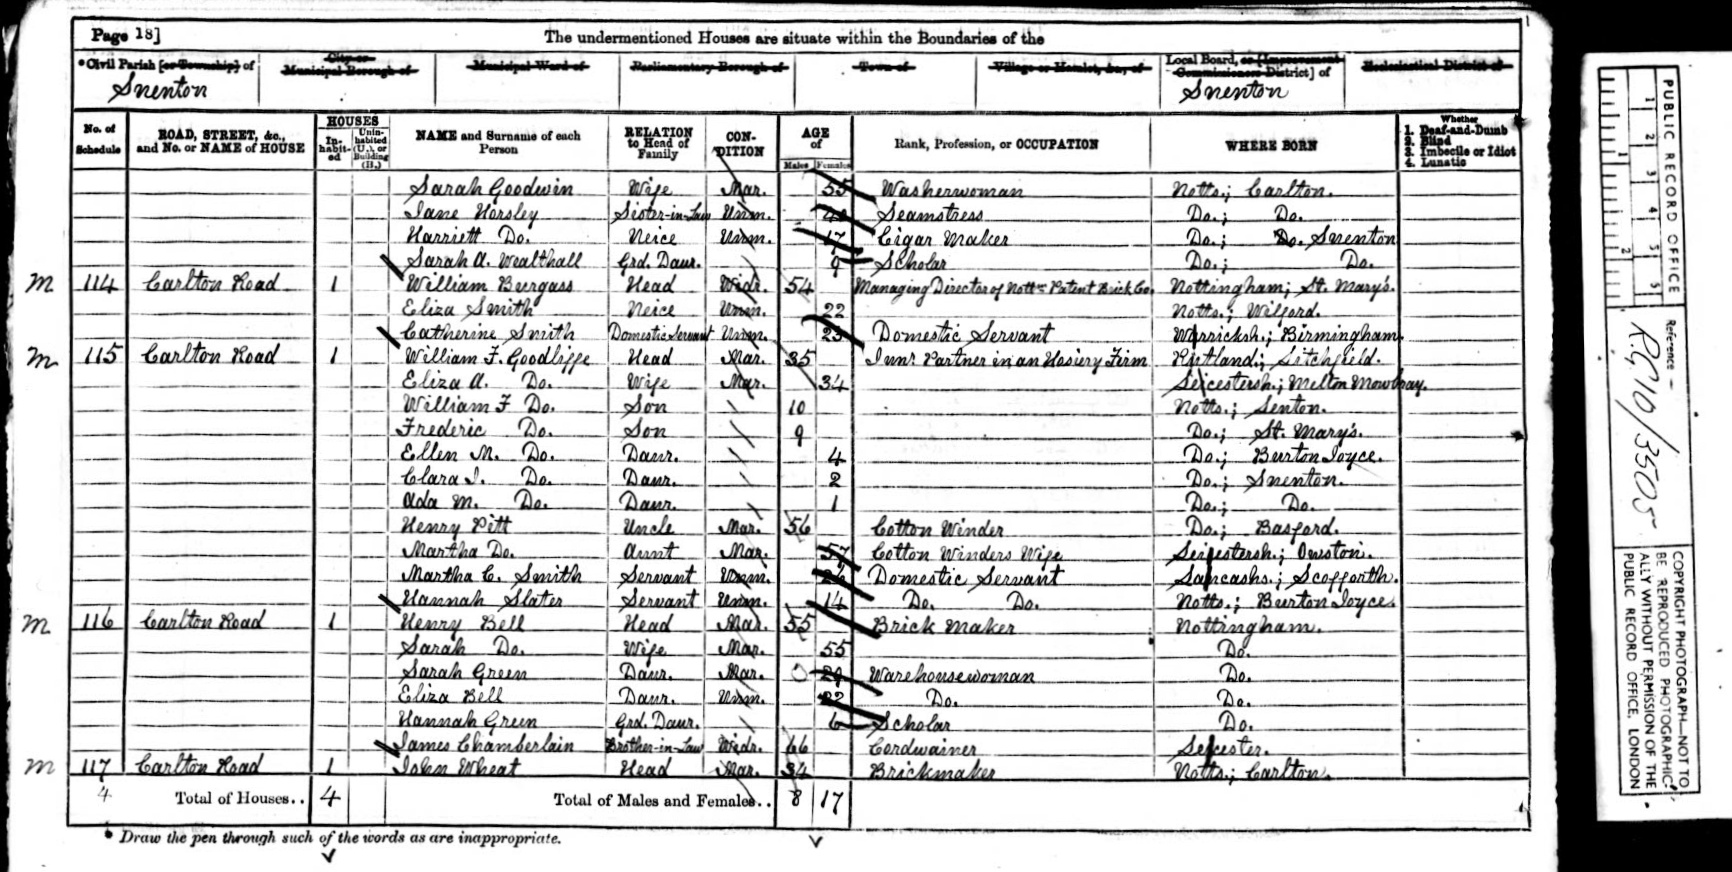 Page 18]
The undermentioned Houses are situate within the Boundaries of the
*Civil Parish [or Township] of
City or Municipal Borough of
Municipal Ward of
Parliamentary Borough of
Town of
Village or Hamlet, &c., of
Local Board, or [Improvement Commissioners District] of
Ecclesiastical District of
Snenton
Snenton
No. of Schedule
ROAD, STREET, &c., and No. or NAME of HOUSE
HOUSES
In-habit-ed
Unin-habited (U.), or Building (B.)
NAME and Surname of each Person
RELATION to Head of Family
CON-DITION
AGE of
Males
Females
Rank, Profession, or OCCUPATION
WHERE BORN
Whether
1. Deaf-and-Dumb
2. Blind
3. Imbecile or Idiot
4. Lunatic
Sarah Goodwin Wife Mar. 55 Washerwoman Notts.; Carlton.
Jane Horsley Sister-in-Law Unm. Seamstress Do.; Do.
Harriett Do. Neice Unm. 17 Cigar Maker Do.; Do. Snenton
Sarah A. Wealthall Grd. Daur. 9 Scholar Do.; Do.
M 114 Carlton Road 1 William Burgass Head Widr. 54 Managing Director of Nottm Patent Brick Co. Nottingham; St. Mary's.
Eliza Smith Neice Unm. 22 Notts.; Wilford.
Catherine Smith Domestic Servant Unm. 23 Domestic Servant Warricksh.; Birmingham.
M 115 Carlton Road 1 William F. Goodliffe Head Mar. 35 Junr. Partner in an Hosiery Firm Rutland; Litchfield.
Eliza A. Do. Wife Mar. 34 Leicestersh.; Melton Mowbray.
William F Do. Son 10 Notts.; Lenton.
Frederic Do. Son 9 Do.; St. Mary's.
Ellen M. Do. Daur. 4 Do.; Burton Joyce.
Clara J. Do. Daur. 2 Do.; Snenton.
Ada M. Do. Daur. 1 Do.; Do.
Henry Pitt Uncle Mar. 56 Cotton Winder Do.; Basford.
Martha Do. Aunt Mar. 57 Cotton Winders Wife Leicestersh.; Owston.
Martha C. Smith Servant Unm. Domestic Servant Lancashs.; Scofforth.
Hannah Slater Servant Unm. 14 Do. Do. Notts.; Burton Joyce.
M 116 Carlton Road 1 Henry Bell Head Mar. 55 Brick Maker Nottingham.
Sarah Do. Wife Mar. 55 Do.
Sarah Green Daur. Mar. 29 Warehousewoman Do.
Eliza Bell Daur. Unm. 22 Do. Do.
Hannah Green Grd. Daur. 6 Scholar Do.
James Chamberlain Brother-in-Law Widr. 66 Cordwainer Leicester.
M 117 Carlton Road 1 John Wheat Head Mar. 34 Brickmaker Notts.; Carlton.
4 Total of Houses.. 4 Total of Males and Females.. 8 17
* Draw the pen through such of the words as are inappropriate.
PUBLIC RECORD OFFICE
Reference —
RG10/3505
COPYRIGHT PHOTOGRAPH—NOT TO
BE REPRODUCED PHOTOGRAPHIC-
ALLY WITHOUT PERMISSION OF THE
PUBLIC RECORD OFFICE, LONDON